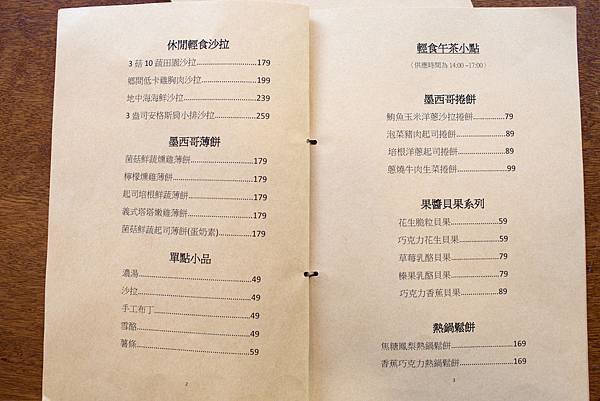 休閒輕食沙拉
3 菇 10 蔬田園沙拉........................179
鄉間低卡雞胸肉沙拉........................199
地中海海鮮沙拉........................239
3 盎司安格斯肩小排沙拉........................259
墨西哥薄餅
菌菇鮮蔬燻雞薄餅........................179
檸檬燻雞薄餅........................179
起司培根鮮蔬薄餅........................179
義式塔塔嫩雞薄餅........................179
菌菇鮮蔬起司薄餅(蛋奶素)............179
單點小品
濃湯........................49
沙拉........................49
手工布丁........................49
雪酪........................49
薯條........................59
2
輕食午茶小點
（供應時間為 14:00 ~17:00）
墨西哥捲餅
鮪魚玉米洋蔥沙拉捲餅............79
泡菜豬肉起司捲餅............89
培根洋蔥起司捲餅............89
蔥燒牛肉生菜捲餅............99
果醬貝果系列
花生脆粒貝果............59
巧克力花生貝果............59
草莓乳酪貝果............79
榛果乳酪貝果............79
巧克力香蕉貝果............89
熱鍋鬆餅
焦糖鳳梨熱鍋鬆餅............169
香蕉巧克力熱鍋鬆餅............169
3